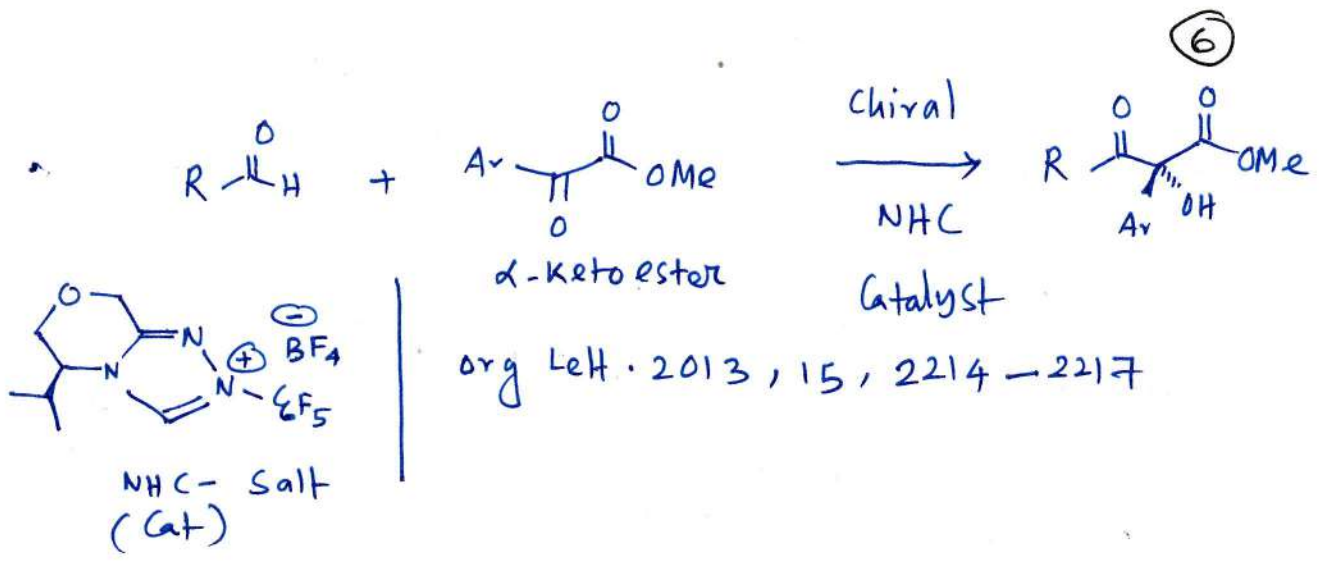 6
O
R H
+
O
Ar OMe
O
α-Keto ester
Chiral
NHC
Catalyst
O O
R OMe
Ar OH
O
N
N
N
+
-
BF4
C6F5
NHC- Salt
(Cat)
org Lett. 2013, 15, 2214-2217